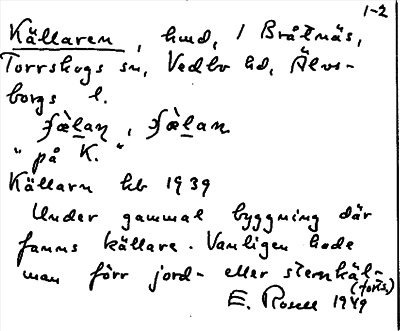 1-2
Källaren, hmd, / Bråtnäs,
Torrskogs sn, Vedbo hd, Älvs-
borgs l.
"på K."
Källarn hb 1939
Under gammal byggning där
fanns källare. Vanligen hade
man förr jord- eller stenkäl-
(forts)
E. Rosell 1949